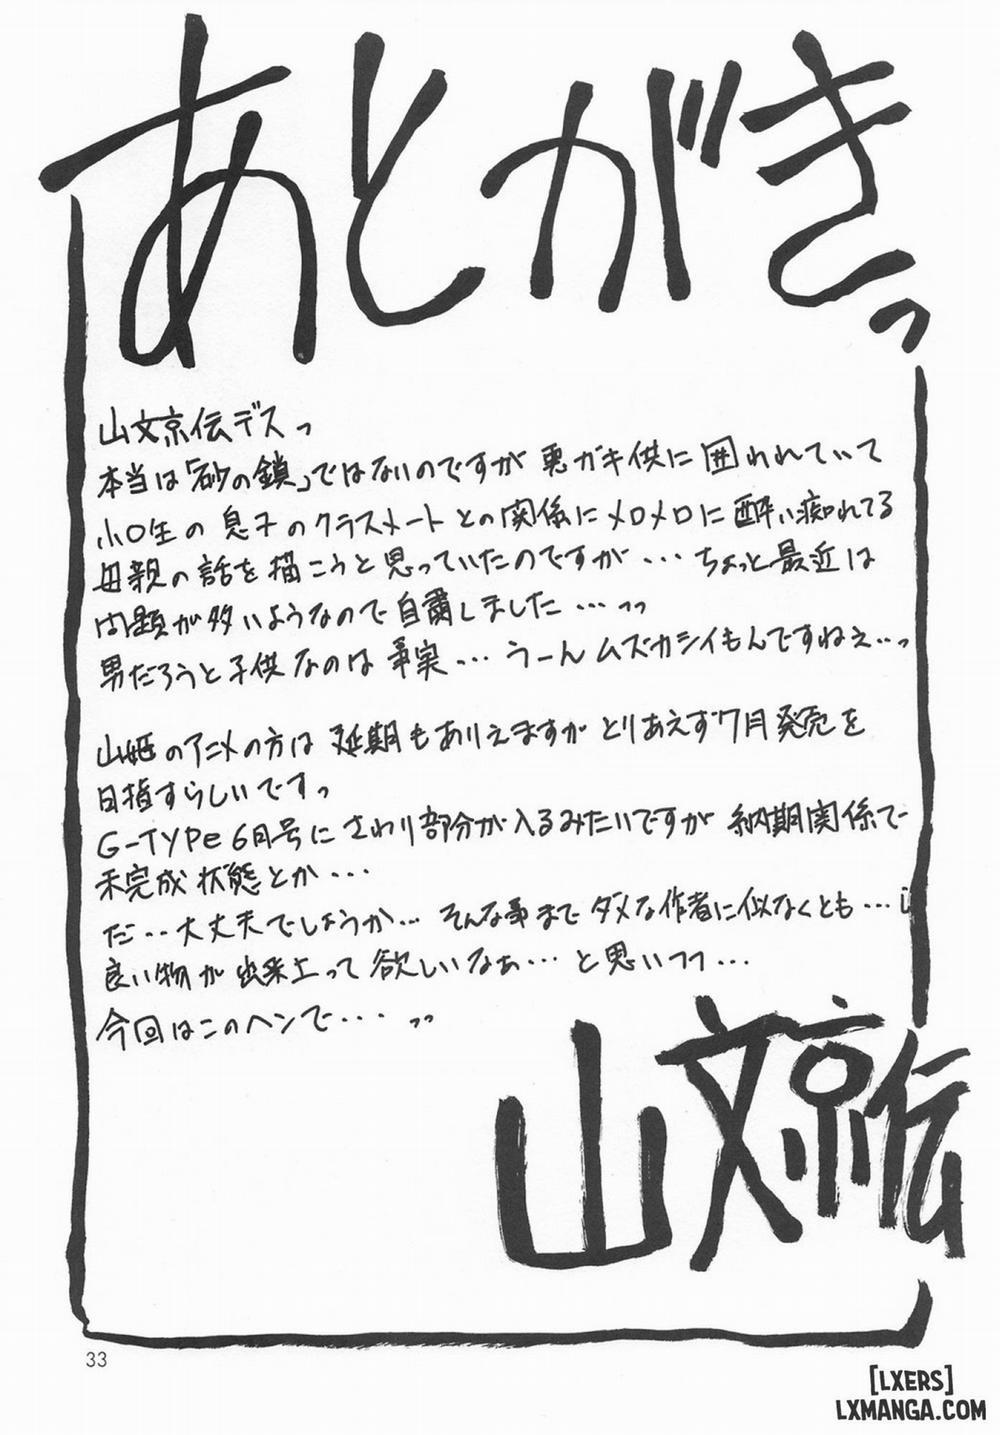 あとがきっ
山文京伝デスっ
本当は「砂の鎖」ではないのですが悪ガキ供に囲われていて
小〇生の息子のクラスメートとの関係にメロメロに酔い痴れてる
母親の話を描こうと思っていたのですが…ちょっと最近は
問題が多いようなので自粛しました…っっ
男だろうと子供なのは事実…うーんムズカシイもんですねぇ…っ
山姫のアニメの方は延期もありえますがとりあえず7月発売を
目指すらしいですっ
G-TYPe6月号にさわり部分が入るみたいですが納期関係で
未完成状態とか…
だ…大丈夫でしょうか…そんな事までダメな作者に似なくとも…い
良い物が出来上って欲しいなぁ…と思いつつ…
今回はこのヘンで…っっ
山文京伝
33
[LXERS]
LXMANGA.COM